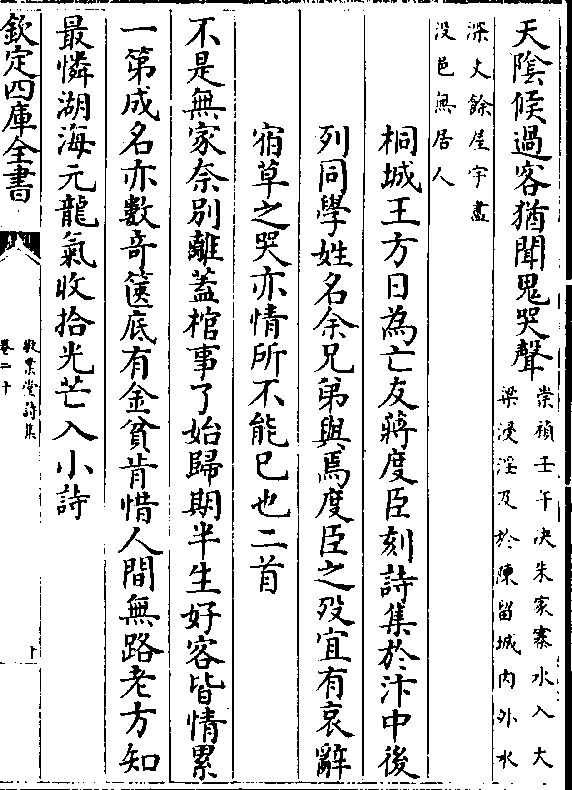 天陰候過客猶聞鬼哭聲
崇禎壬午决朱家寨水入大
梁浸淫及於陳留城内外水
深丈餘屋宇盡
没邑無居人
桐城王方日為亡友蔣度臣刻詩集於汴中後
列同學姓名余兄弟與焉度臣之殁宜有哀辭
宿草之哭亦情所不能已也二首
不是無家奈别離蓋棺事了始歸期半生好客皆情累
一第成名亦數奇篋底有金貧肯惜人間無路老方知
最憐湖海元龍氣收拾光芒入小詩
欽定四庫全書
敬業堂詩集
卷二十